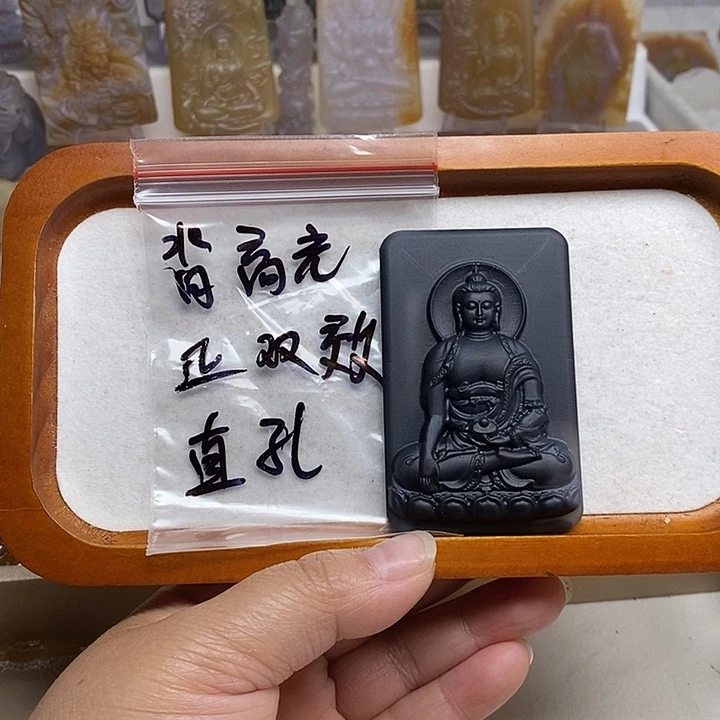 背高光
正双效
直孔